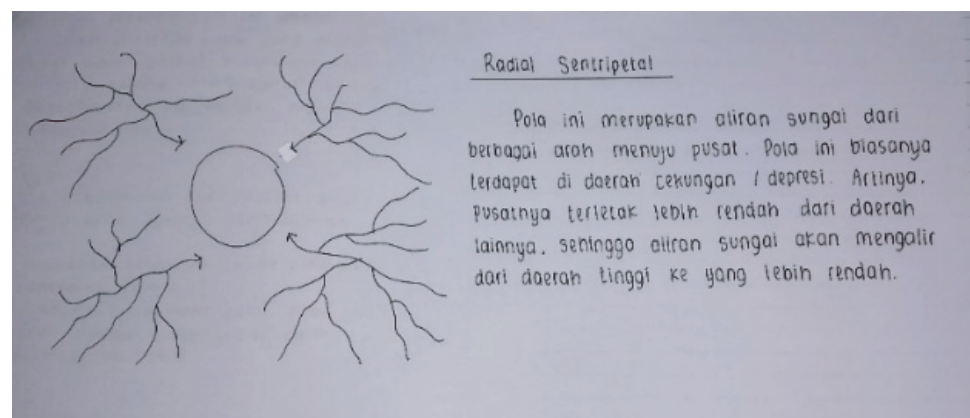 Radial Sentripetal
Pola ini merupakan aliran sungai dari
berbagai arah menuju pusat. Pola ini biasanya
terdapat di daerah cekungan / depresi. Artinya,
pusatnya terletak lebih rendah dari daerah
lainnya, sehingga aliran sungai akan mengalir
dari daerah tinggi ke yang lebih rendah.